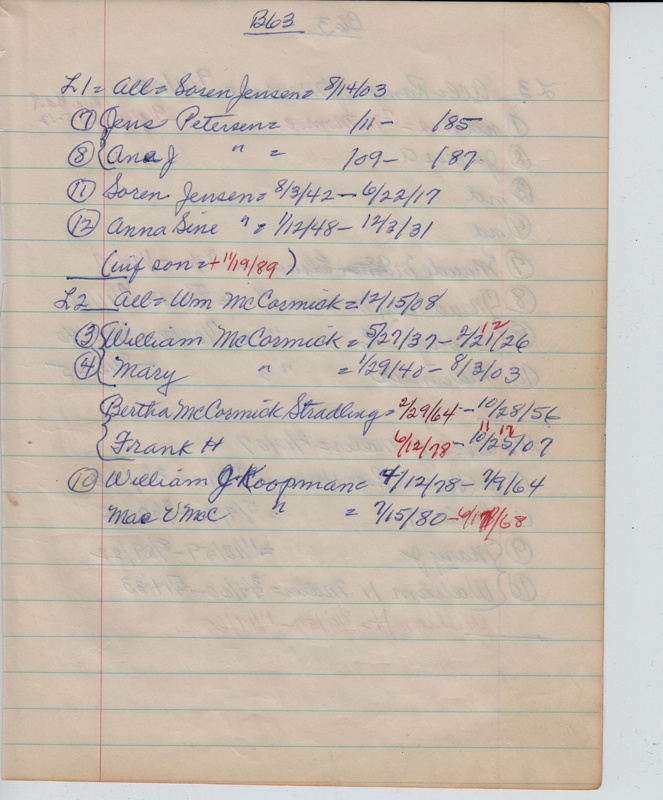 B63
L1 = All = Soren Jensen = 8/14/03
⑦ Jens Petersen = /11 - /85
⑧ Ana J " = /09 - /87
⑪ Soren Jensen = 8/3/42 - 6/22/17
⑫ Anna Sine " = 1/12/48 - 12/3/31
(inf son = + 11/19/89)
L2 All = Wm McCormick = 12/15/08
③ William McCormick = 5/27/37 - 2/21/26 12
④ Mary " = 1/29/40 - 8/3/03
Bertha McCormick Stradling = 2/29/64 - 10/28/56
Frank H 6/12/78 - 10/25/07 11 17
⑩ William J. Koopman = 4/12/78 - 7/9/64
Mae V McC " = 7/15/80 - /68